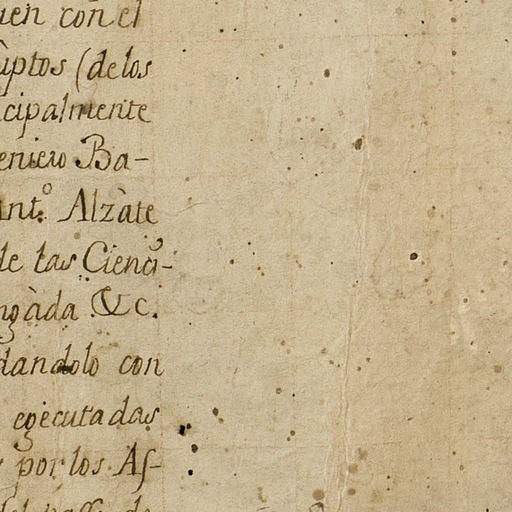 uen con el
ùptos (de los
cipalmente
eniero Ba-
Ant.º Alzàte
de las Cienci-
ngàda &c.
dandolo con
egecutadas
por los As-
del passo de